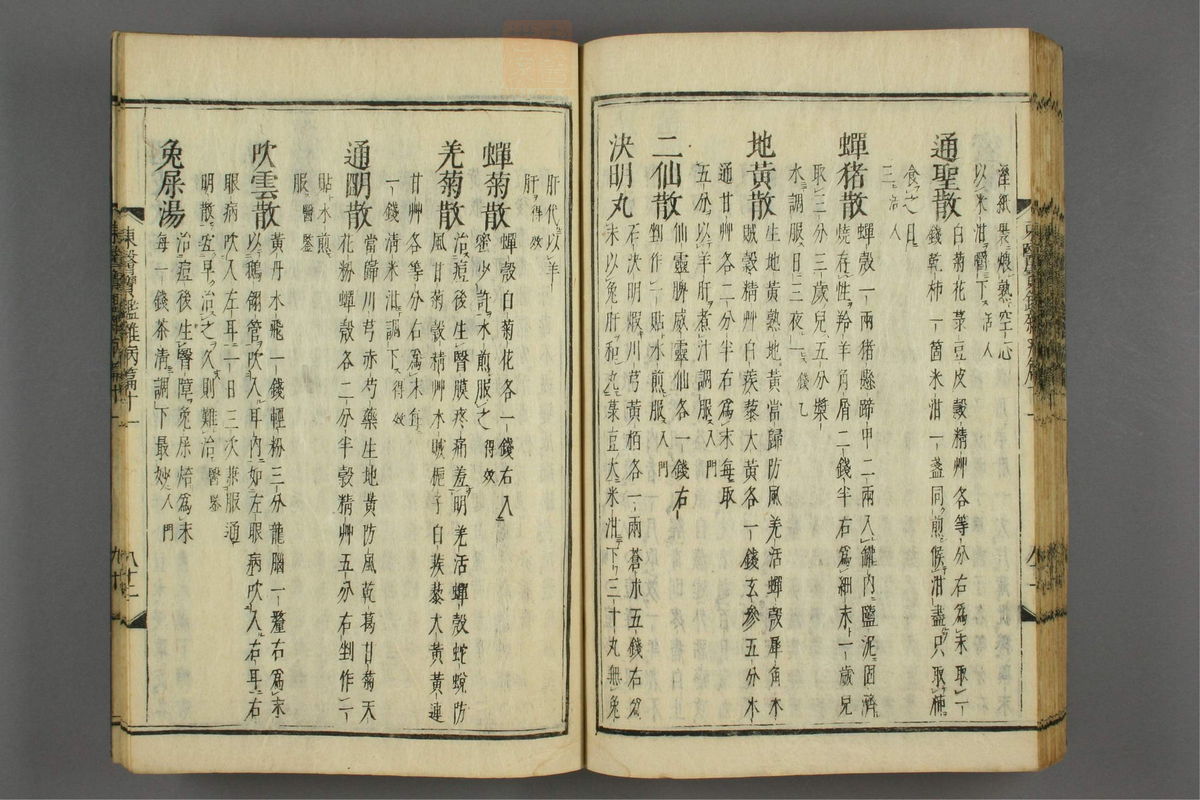 濕紙裹煨熟空心
以米泔嚼下活人
通聖散 白菊花菉豆皮穀精艸各等分右爲末取一
錢乾柿一箇米泔一盞同煎候泔盡只取柿
食之日
三活人
蟬猪散 蟬殼一兩猪懸蹄甲二兩入罐内鹽泥固濟
燒存性羚羊角屑二錢半右爲細末一歲兒
取三分三歲兒五分漿
水調服日三夜一錢乙
地黃散 生地黃熟地黃當歸防風羌活蟬殼犀角木
賊穀精艸白蒺藜大黃各一錢玄參五分木
通甘艸各二分半右爲末每取
五分以羊肝煮汁調服入門
二仙散 仙靈脾威靈仙各一錢右
剉作一貼水煎服入門
決明丸 石決明煆川芎黃栢各一兩蒼朮五錢右爲
末以兔肝和丸菉豆大米泔下三十丸無兔
肝代以羊
肝得效
蟬菊散 蟬殼白菊花各一錢右入
蜜少許水煎服之得效
羌菊散 治痘後生瞖膜疼痛羞明羌活蟬殼蛇蛻防
風甘菊穀精艸木賊梔子白蒺藜大黃黃連
甘艸各等分右爲末每
一錢清米泔調下得效
通明散 當歸川芎赤芍藥生地黃防風乾葛甘菊天
花粉蟬殼各二分半穀精艸五分右剉作一
貼水煎
服醫鑒
吹雲散 黃丹水飛一錢輕粉三分龍腦一釐右爲末
以鵝翎管吹入耳内如左眼病吹入右耳右
眼病吹入左耳一日三次兼服通
明散宜早治之久則難治醫鑒
兔屎湯 治痘後生瞖障兔屎焙爲末
每一錢茶清調下最妙入門
東醫寶鑑雜病篇十一
八十二